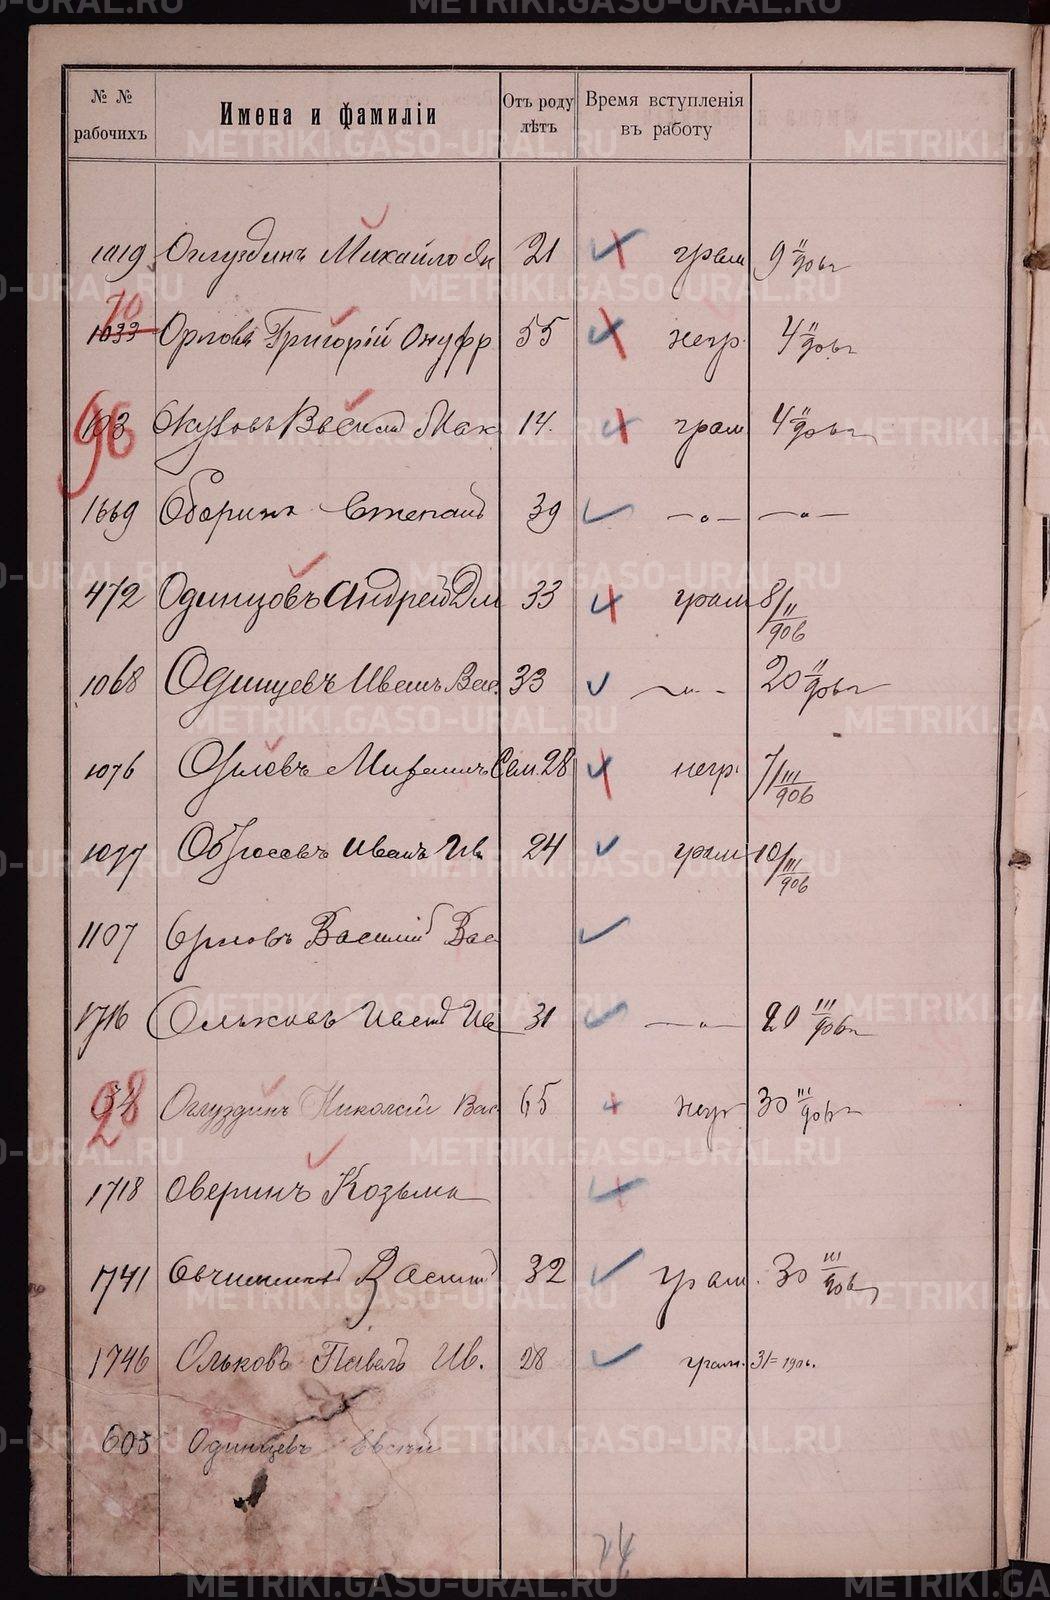 № № рабочихъ
Имена и фамиліи
Отъ роду лѣтъ
Время вступленія въ работу
1019 Оглуздинъ Михайло Як 21 грам 9 II 906 г
1033 70 Орловъ Григорій Онуфр 55 негр. 4 II 906 г
96 Василій Мак 14. грам 4 II 906 г
1669 Оборинъ Степанъ 39 —„— —„—
472 Одинцовъ Андрей Дм 33 грам 8/II 906
1068 Одинцевъ Иванъ Вас. 33 —„— 20 II 906 г
1076 Орловъ Сем. 28 негр. 7/III 906
1077 Обросовъ Иванъ Ив 24 грам 10/III 906
1107 Орловъ Василій Вас
1716 Ольковъ Иванъ Ив 31 —„— 20 III 906 г
28 Оглуздинъ Николай Вас 65 негр 30 III 906 г
1718 Оверинъ Козьма
1741 Овчинниковъ Василій 32 грам. 30 III 906 г
1746 Ольковъ Павелъ Ив. 28 грам. 31= 1906.
603 Одинцевъ Евсей
74
METRIKI.GASO-URAL.RU